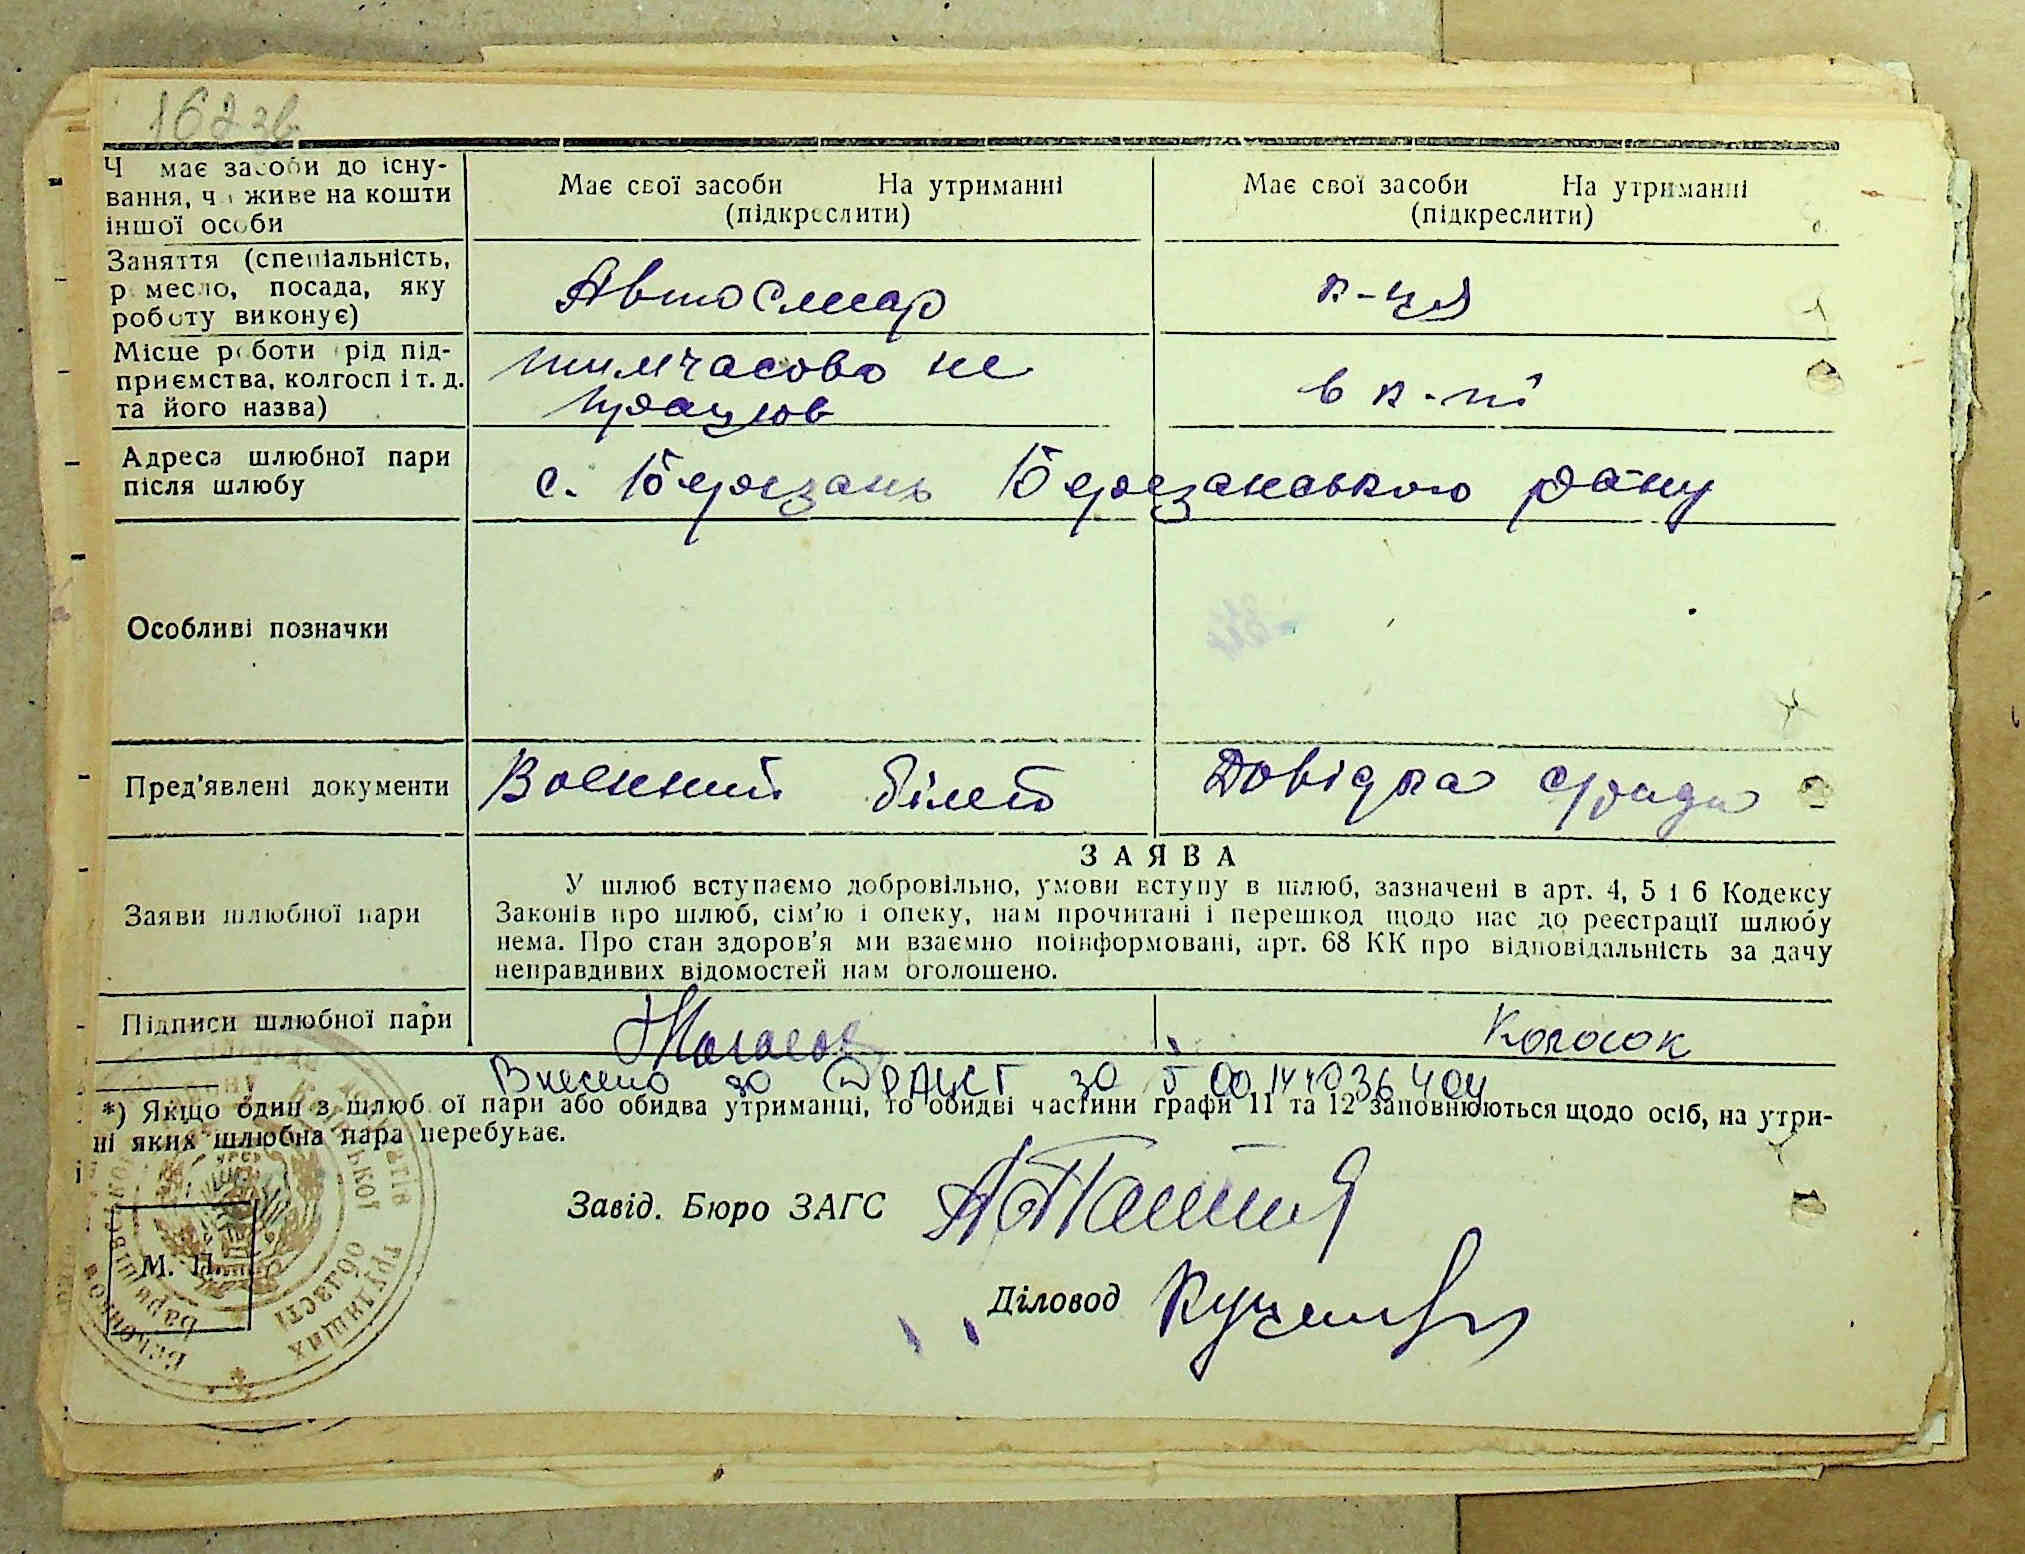 162 зв
Ч має засоби до існу-
вання, чи живе на кошти
іншої особи
Має свої засоби На утриманні
(підкреслити)
Має свої засоби На утриманні
(підкреслити)
Заняття (спеціальність,
ремесло, посада, яку
роботу виконує)
Автослюсар
к-ця
Місце роботи рід під-
приємства, колгосп і т. д.
та його назва)
тимчасово не
працюв
в к-пі
Адреса шлюбної пари
після шлюбу
с. Березань Березанського р-ну
Особливі позначки
Пред'явлені документи
Военний білет
Довідка с/ради
Заяви шлюбної пари
ЗАЯВА
У шлюб вступаємо добровільно, умови вступу в шлюб, зазначені в арт. 4, 5 і 6 Кодексу
Законів про шлюб, сім'ю і опеку, нам прочитані і перешкод щодо нас до реєстрації шлюбу
нема. Про стан здоров'я ми взаємно поінформовані, арт. 68 КК про відповідальність за дачу
неправдивих відомостей нам оголошено.
Підписи шлюбної пари
Колосок
Внесено до ДРАЦСГ за № 00144036404
*) Якщо один з шлюб ої пари або обидва утриманці, то обидві частини графи 11 та 12 заповнюються щодо осіб, на утри-
ні яких шлюбна пара перебуває.
Завід. Бюро ЗАГС
Діловод
М. П.